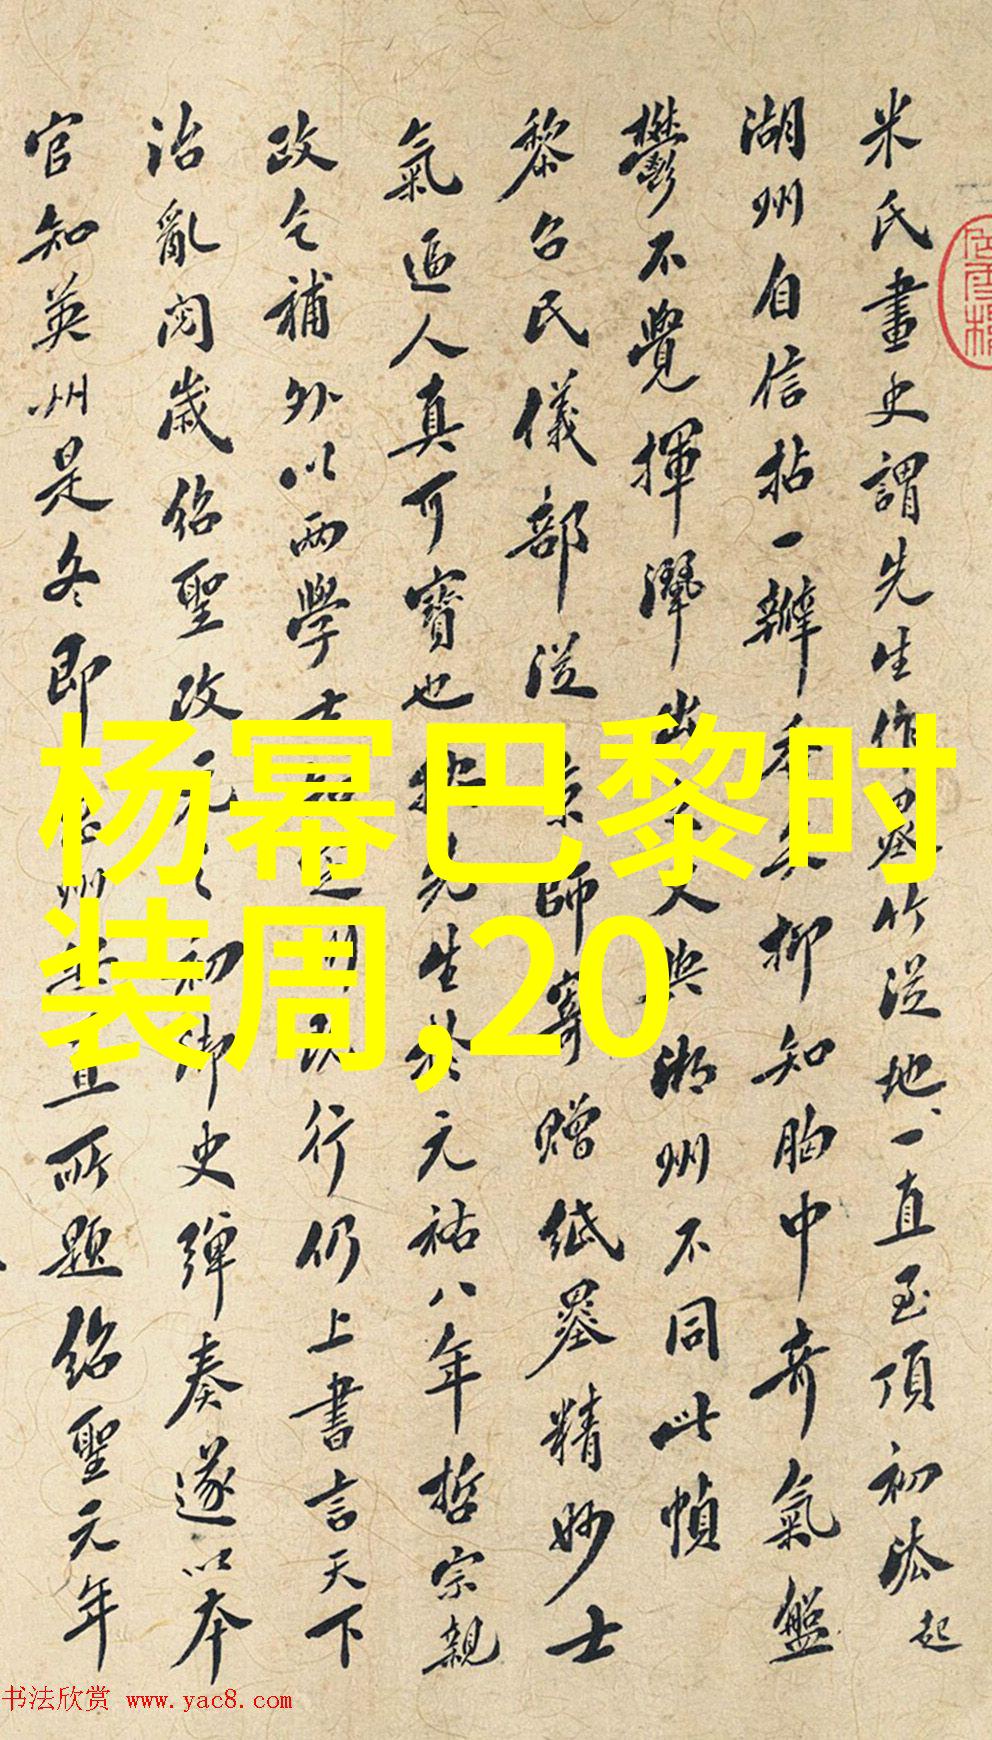 米氏畫史謂先生作墨竹從地一直至頂初法起
湖州自信拈一瓣香與抑知胸中奇氣盤
鬱不覺揮灑出之與湖州不同此幀
黎召民儀部從京師寄贈紙墨精妙士
氣逼人真可寶也先生於元祐八年哲宗親
政乞補外以兩學士行仍上書言天下
治亂閱歲紹聖改元之初御史彈奏遂以本
官知英州是冬即所題紹聖元年
杨幂巴黎时
装周,20
书法欣赏 www.yac8.com